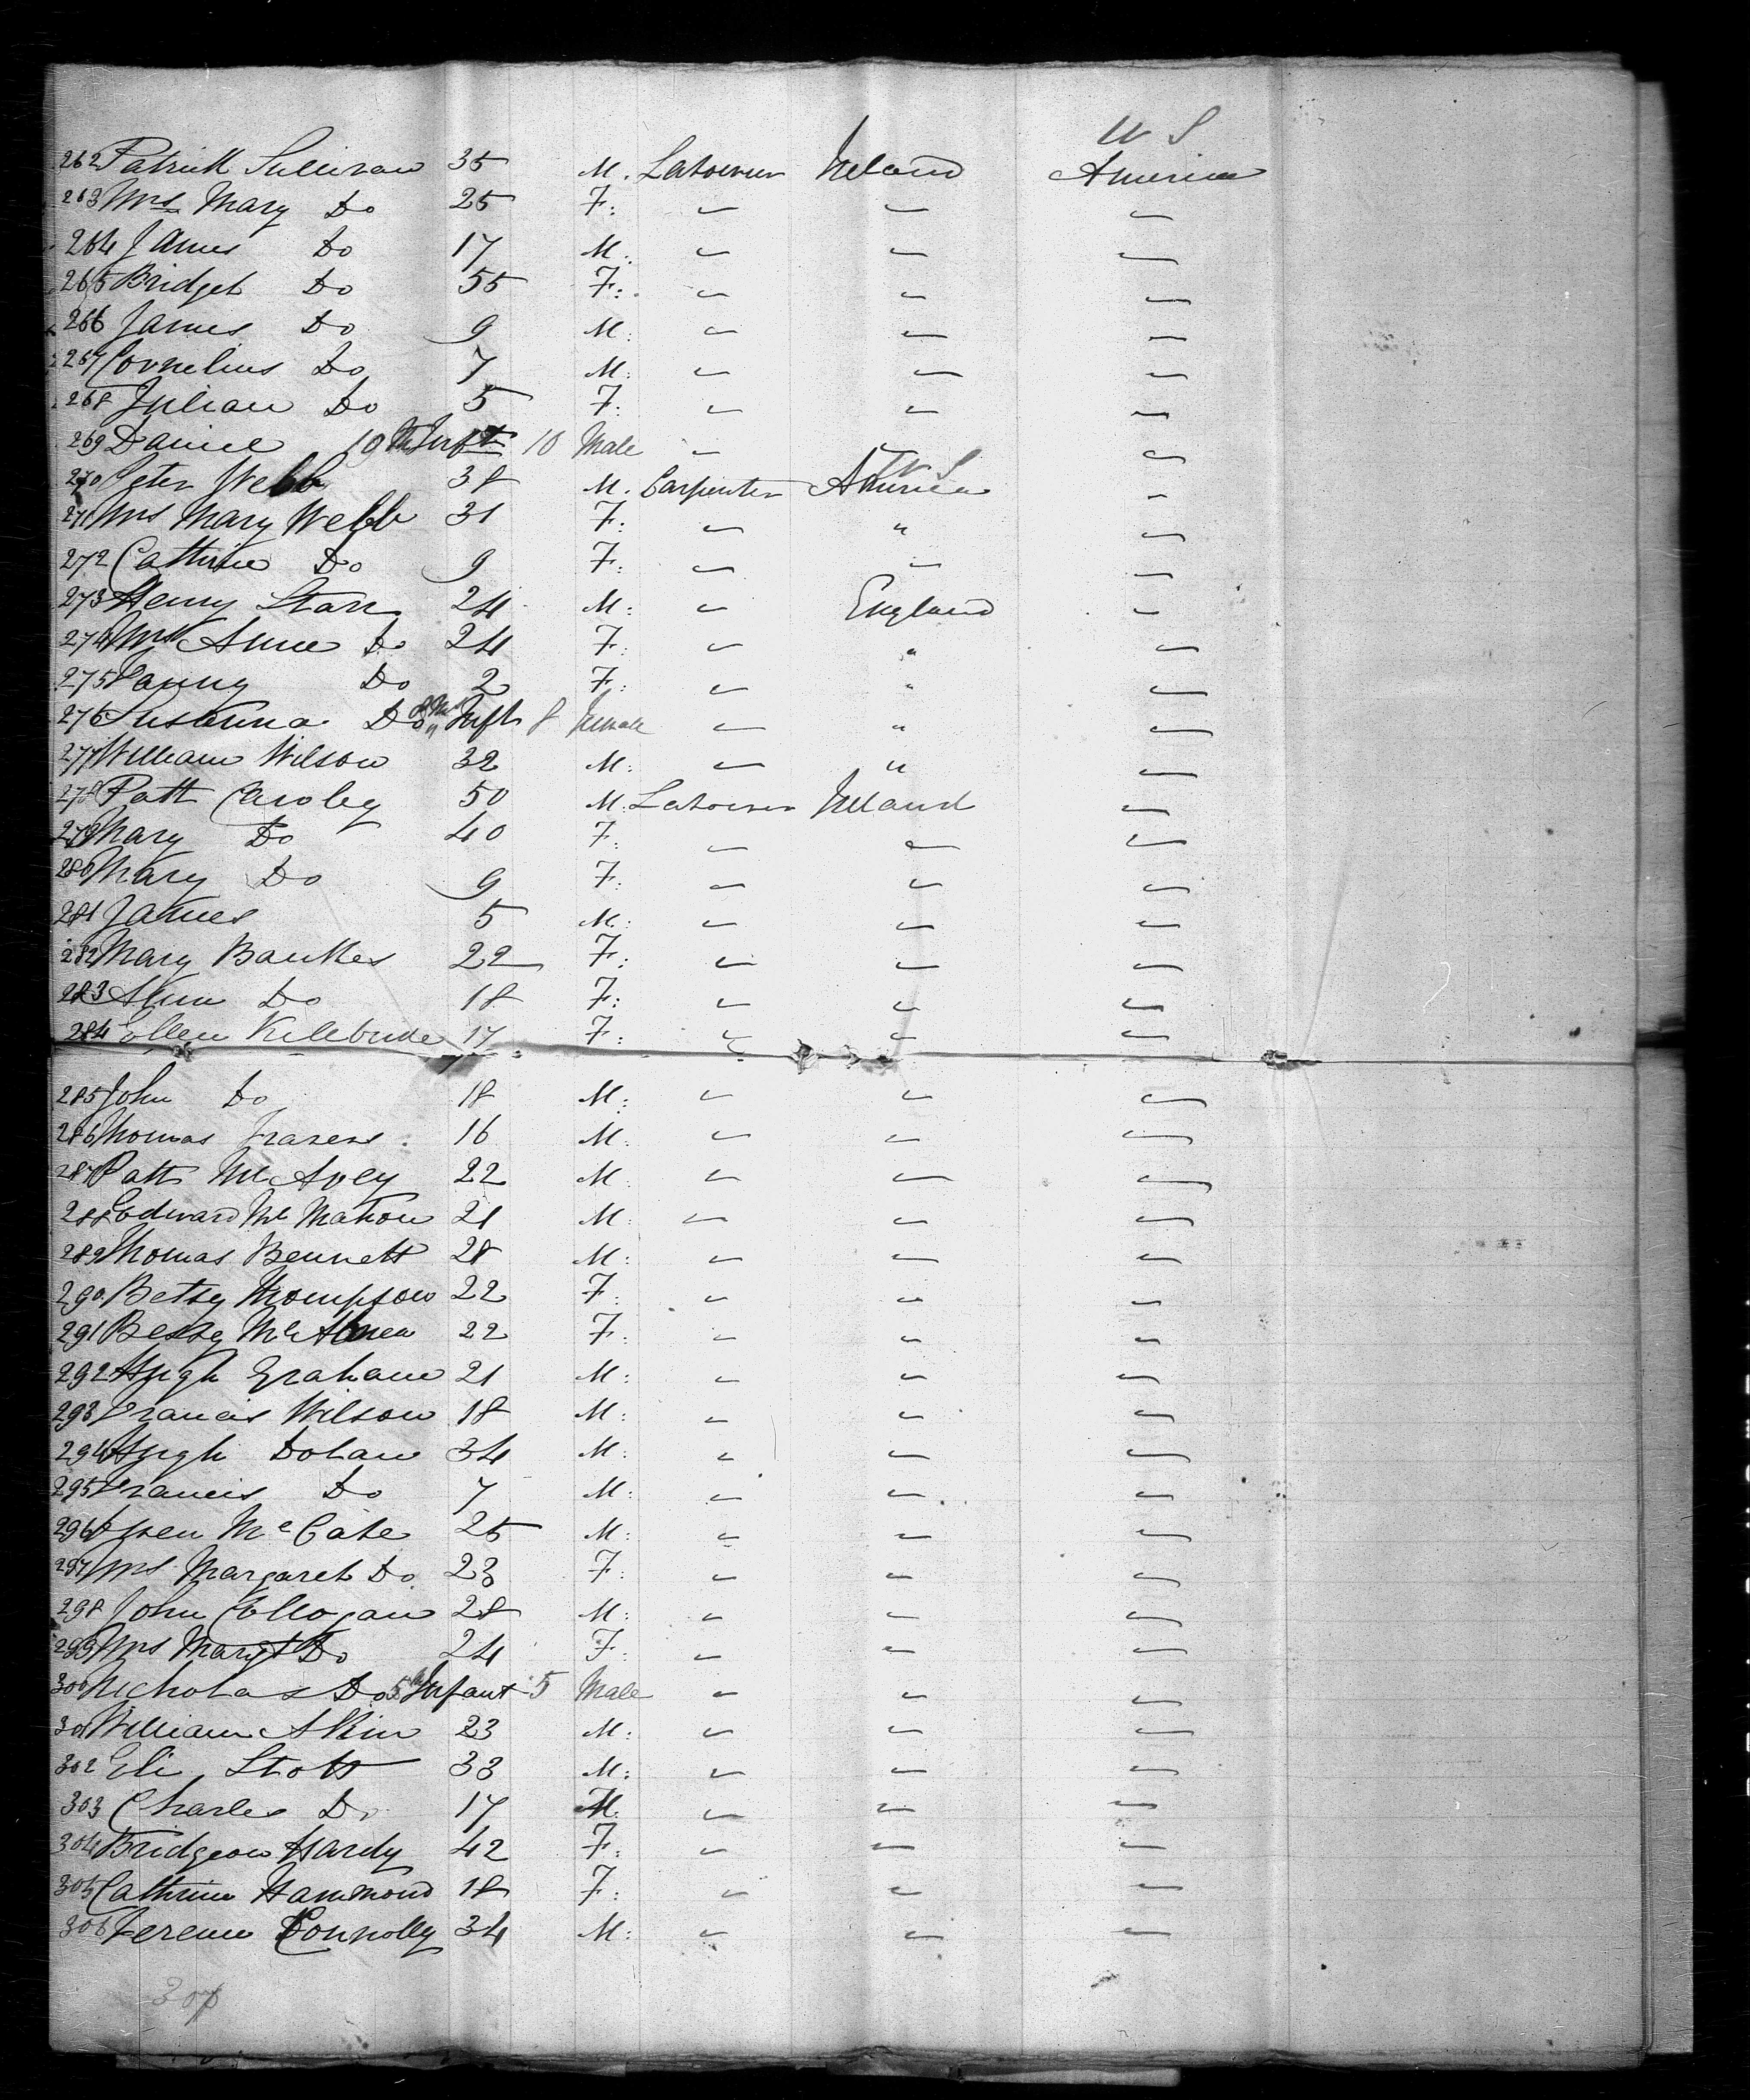 U S
262 Patrick Sullivan 35 M. Labourer Ireland America
263 Mrs Mary Do 25 F: " " "
264 James Do 17 M: " " "
265 Bridget Do 55 F: " " "
266 James Do 9 M: " " "
267 Cornelius Do 7 M: " " "
268 Julian Do 5 F: " " "
269 Daniel Inft 10 Male " "
U S
270 Peter Webb 38 M. Carpenter America "
271 Mrs Mary Webb 31 F: " " "
272 Cathrine Do 9 F: " " "
273 Henry Starr 24 M: " England "
274 Mrs Anne Do 24 F: " " "
275 Fanny Do 2 F: " " "
276 Susanna Do Inft 8 Female " " "
277 William Wilson 32 M: " " "
278 Patt 50 M. Labourer Ireland "
279 Mary Do 40 F: " " "
280 Mary Do 9 F: " " "
281 James 5 M: " " "
282 Mary Bankes 22 F: " " "
283 Ann Do 18 F: " " "
284 Ellen Killbride 17 F: " " "
285 John Do 18 M: " " "
286 Thomas 16 M: " " "
287 Patt Mc Avey 22 M " " "
288 Edward Mc Mahon 21 M: " " "
289 Thomas Bennett 28 M: " " "
290 Betsy Thompson 22 F: " " "
291 Bessy 22 F: " " "
292 Hugh Graham 21 M: " " "
293 Francis Wilson 18 M: " " "
294 Hugh Dolan 34 M: " " "
295 Francis Do 7 M: " " "
296 Owen Mc Cabe 25 M: " " "
297 Mrs Margaret Do 23 F: " " "
298 John 28 M: " " "
299 Mrs Margt Do 24 F: " " "
300 Nicholas Do 5 Infant 5 Male " " "
301 William Akin 23 M: " " "
302 Eli Stott 33 M: " " "
303 Charles Do 17 M. " " "
304 Hardy 42 F: " " "
305 Cathrine Hammond 18 F: " " "
306 Connolly 34 M: " " "
307